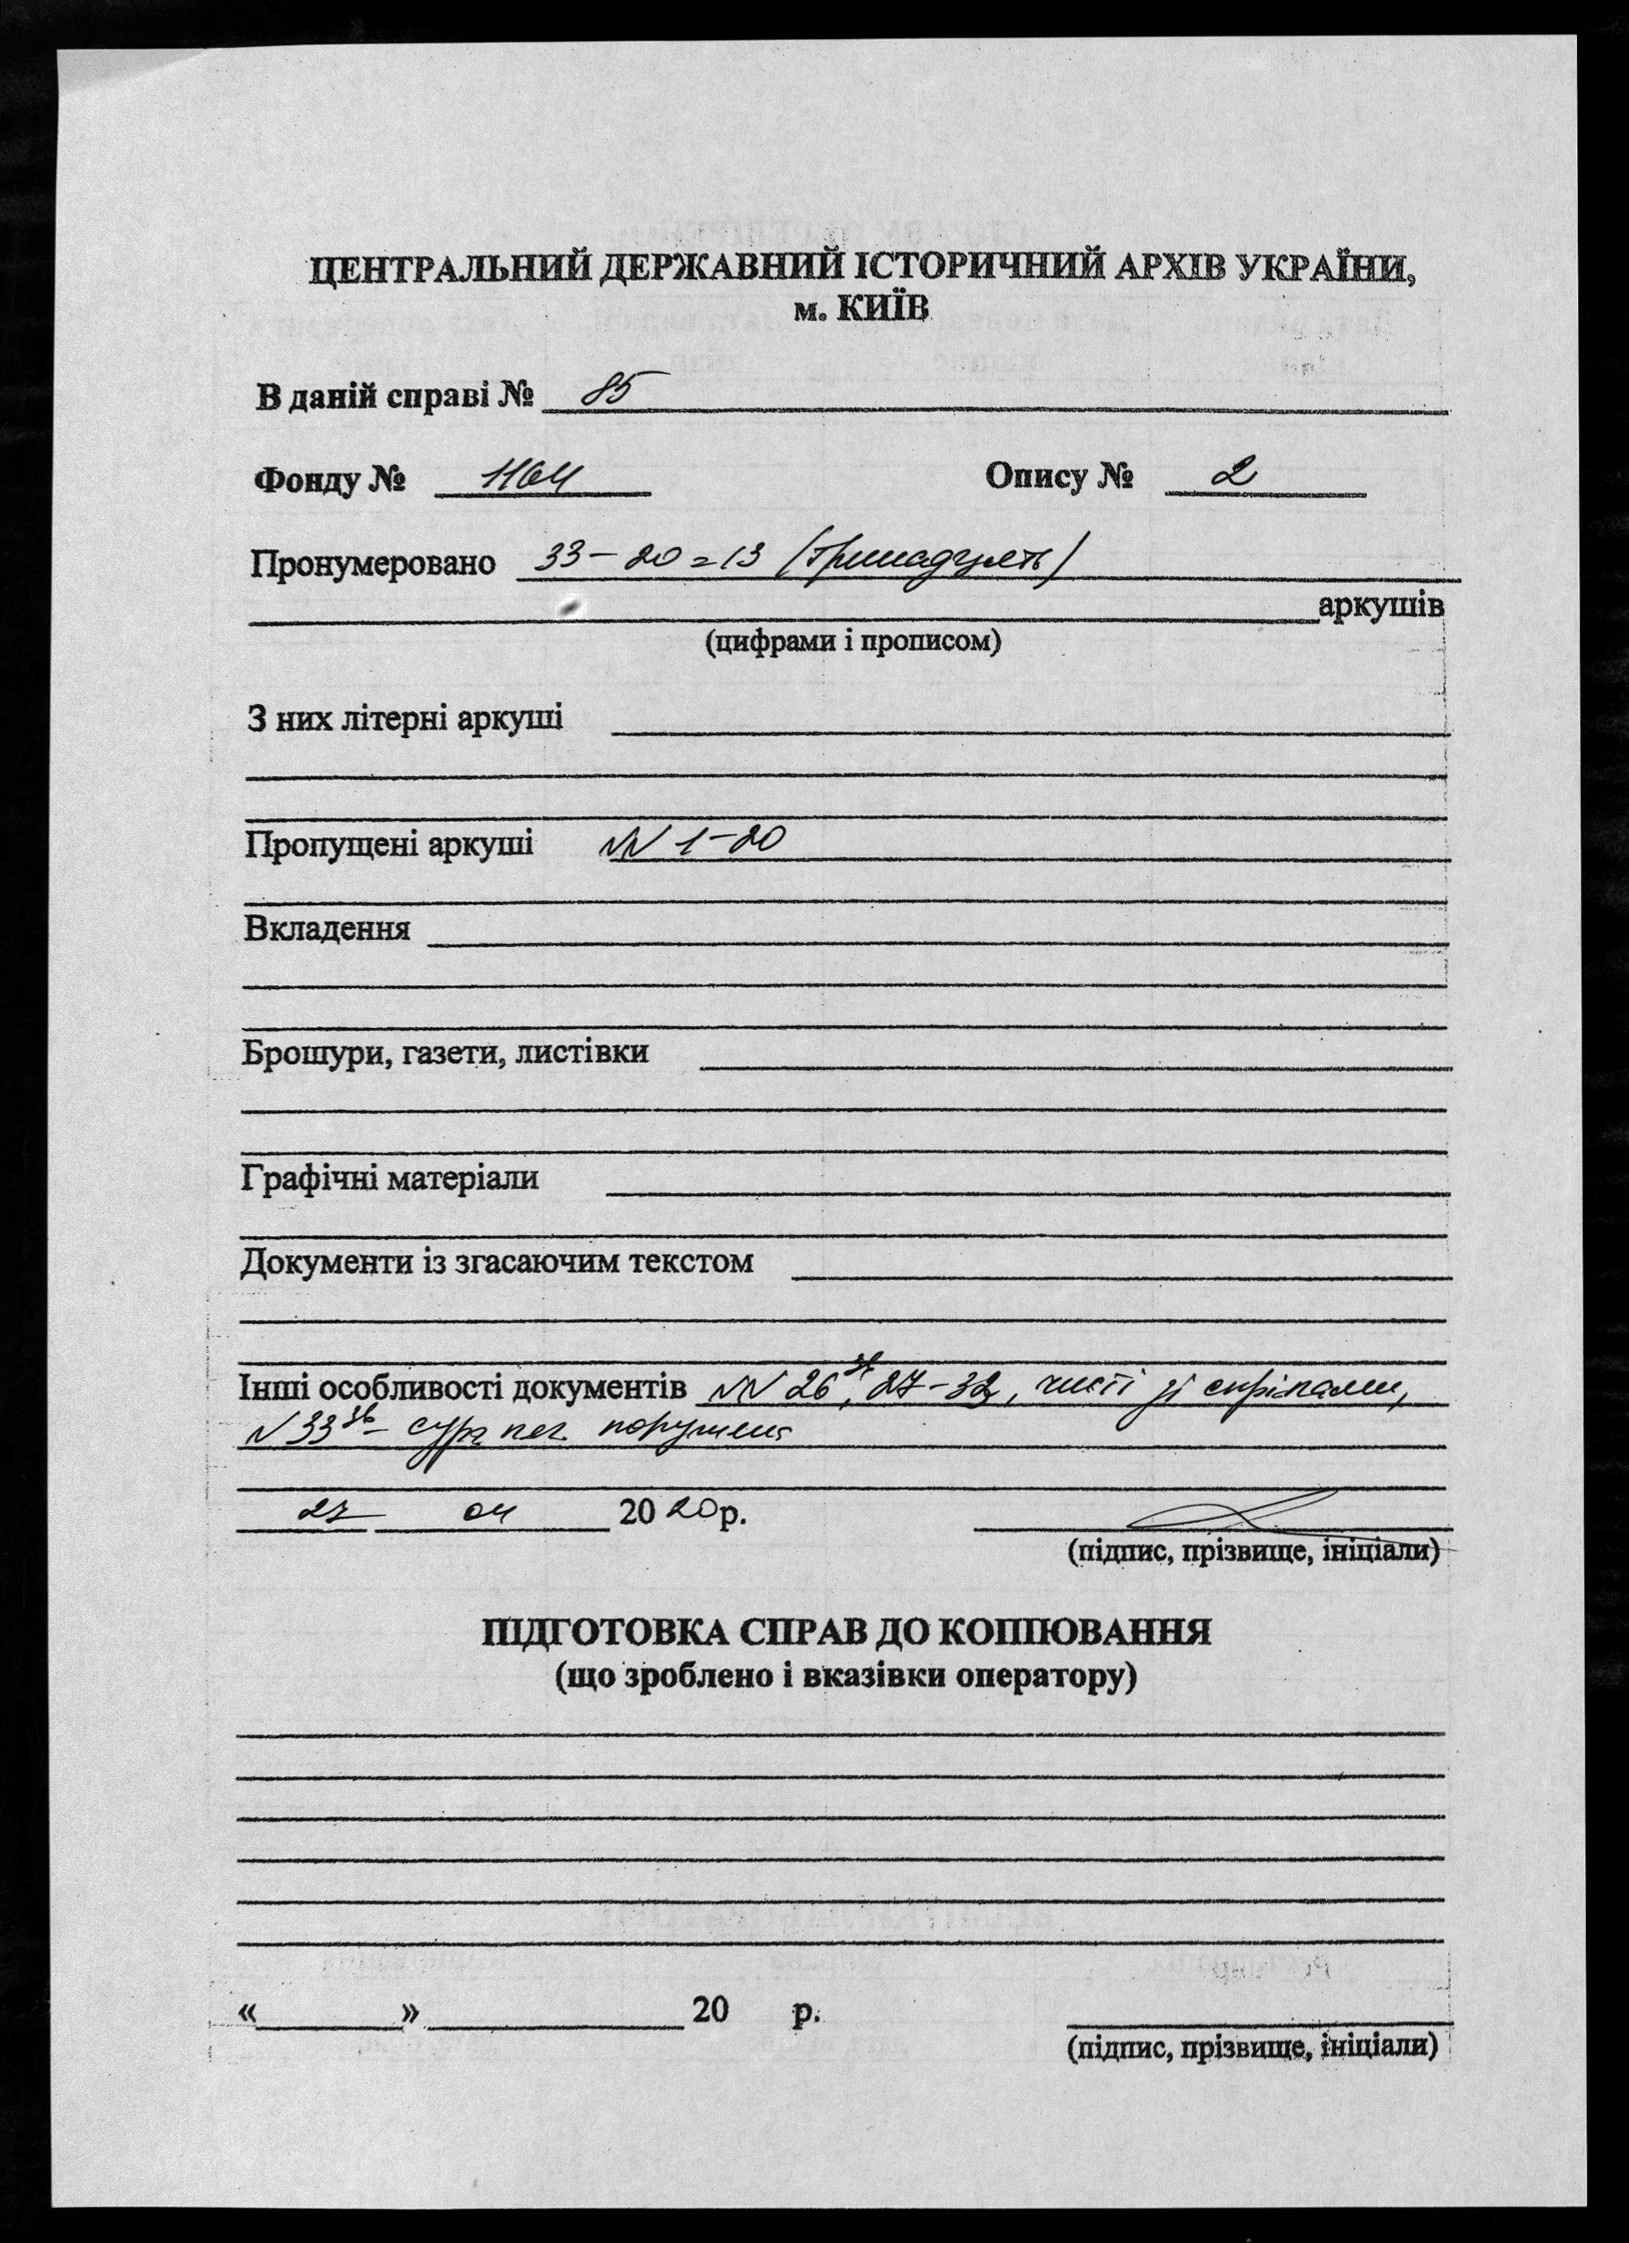 ЦЕНТРАЛЬНИЙ ДЕРЖАВНИЙ ІСТОРИЧНИЙ АРХІВ УКРАЇНИ,
м. КИЇВ
В даній справі № 85
Фонду № 1164 Опису № 2
Пронумеровано 33-20=13 (тринадцять)
аркушів
(цифрами і прописом)
З них літерні аркуші
Пропущені аркуші NN 1-20
Вкладення
Брошури, газети, листівки
Графічні матеріали
Документи із згасаючим текстом
Інші особливості документів NN 26зв, 27-32, чисті зі скріпами,
N 33зв - сург печ порушена
27 04 2020р.
(підпис, прізвище, ініціали)
ПІДГОТОВКА СПРАВ ДО КОПІЮВАННЯ
(що зроблено і вказівки оператору)
« » 20 р.
(підпис, прізвище, ініціали)